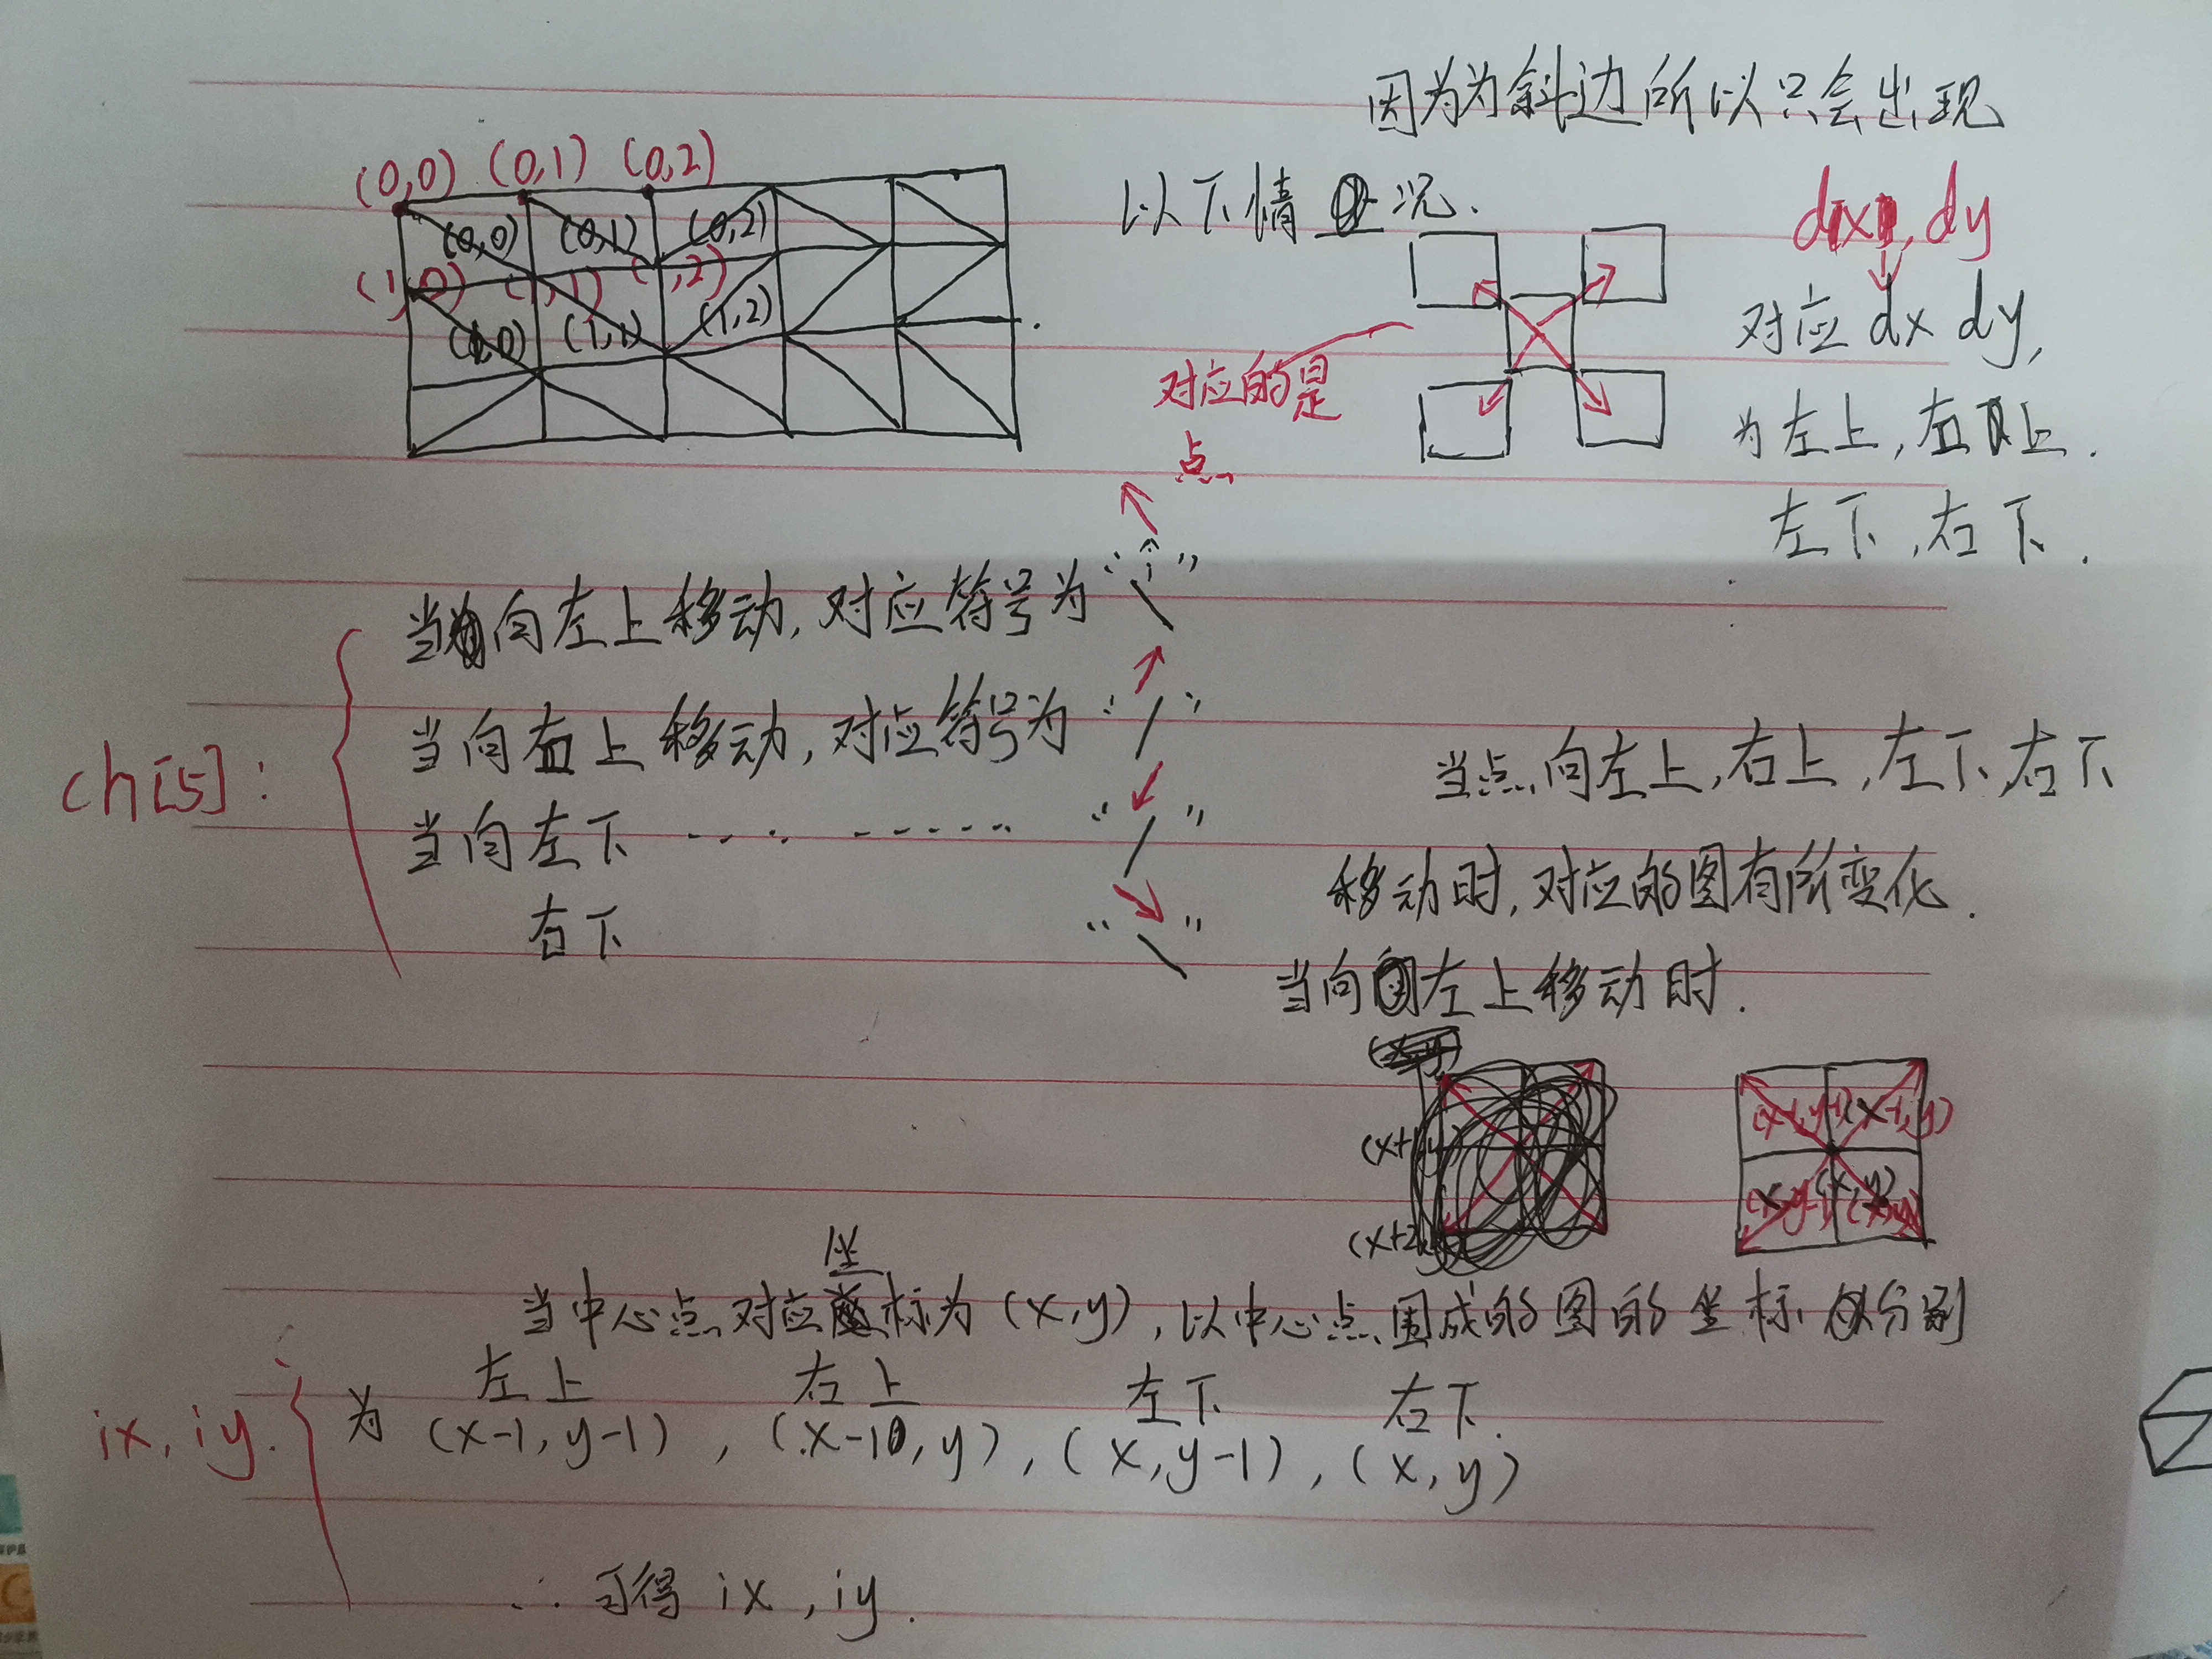 因为为斜边所以只会出现
以下情况.
(0,0) (0,1) (0,2)
(0,0) (0,1) (0,2)
(1,0) (1,1) (1,2)
(1,0) (1,1) (1,2)
dx, dy
对应 dx dy,
为左上,右上.
左下,右下.
对应的是
点
ch[5]:
当向左上移动,对应符号为"\"
当向右上移动,对应符号为"/"
当向左下 ...... "/"
右下 "\"
当点向左上,右上,左下,右下
移动时,对应的图有所变化.
当向左上移动时.
(x-1,y-1) (x-1,y)
(x,y-1) (x,y)
(x,y)
当中心点对应坐标为(x,y),以中心点围成的图的坐标分别
左上 右上 左下 右下.
ix, iy.
为 (x-1,y-1),(x-1,y),(x,y-1),(x,y)
∴可得 ix,iy.